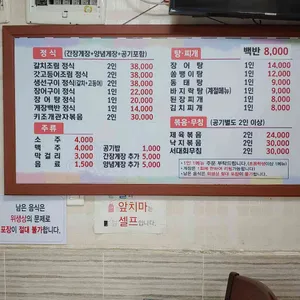 정식 (간장게장+양념게장+공기포함)
갈치조림 정식 2인 38,000
갓고등어조림 정식 2인 38,000
생선구이 정식(갈치+고등어) 2인 38,000
장어구이 정식 2인
장어탕 정식 2인
게장백반 정식 1인
키조개관자볶음 2인 30,000
주류
소주 4,000
맥주 4,000
막걸리 3,000
음료 1,500
공기밥 1,000
간장게장 추가 5,000
양념게장 추가 5,000
탕·찌개 백반 8,000
장어탕 1인 14,000
쏨뱅이탕 1인 12,000
동태탕 1인 9,000
바지락탕 (계절메뉴) 1인 9,000
된장찌개 1인 8,000
김치찌개 1인 8,000
볶음·무침 (공기별도 2인 이상)
제육볶음 2인 24,000
낙지볶음 2인 30,000
서대회무침 2인 30,000
남은 음식은
위생상의 문제로
포장이 절대 불가합니다.
앞치마는
셀프입니다